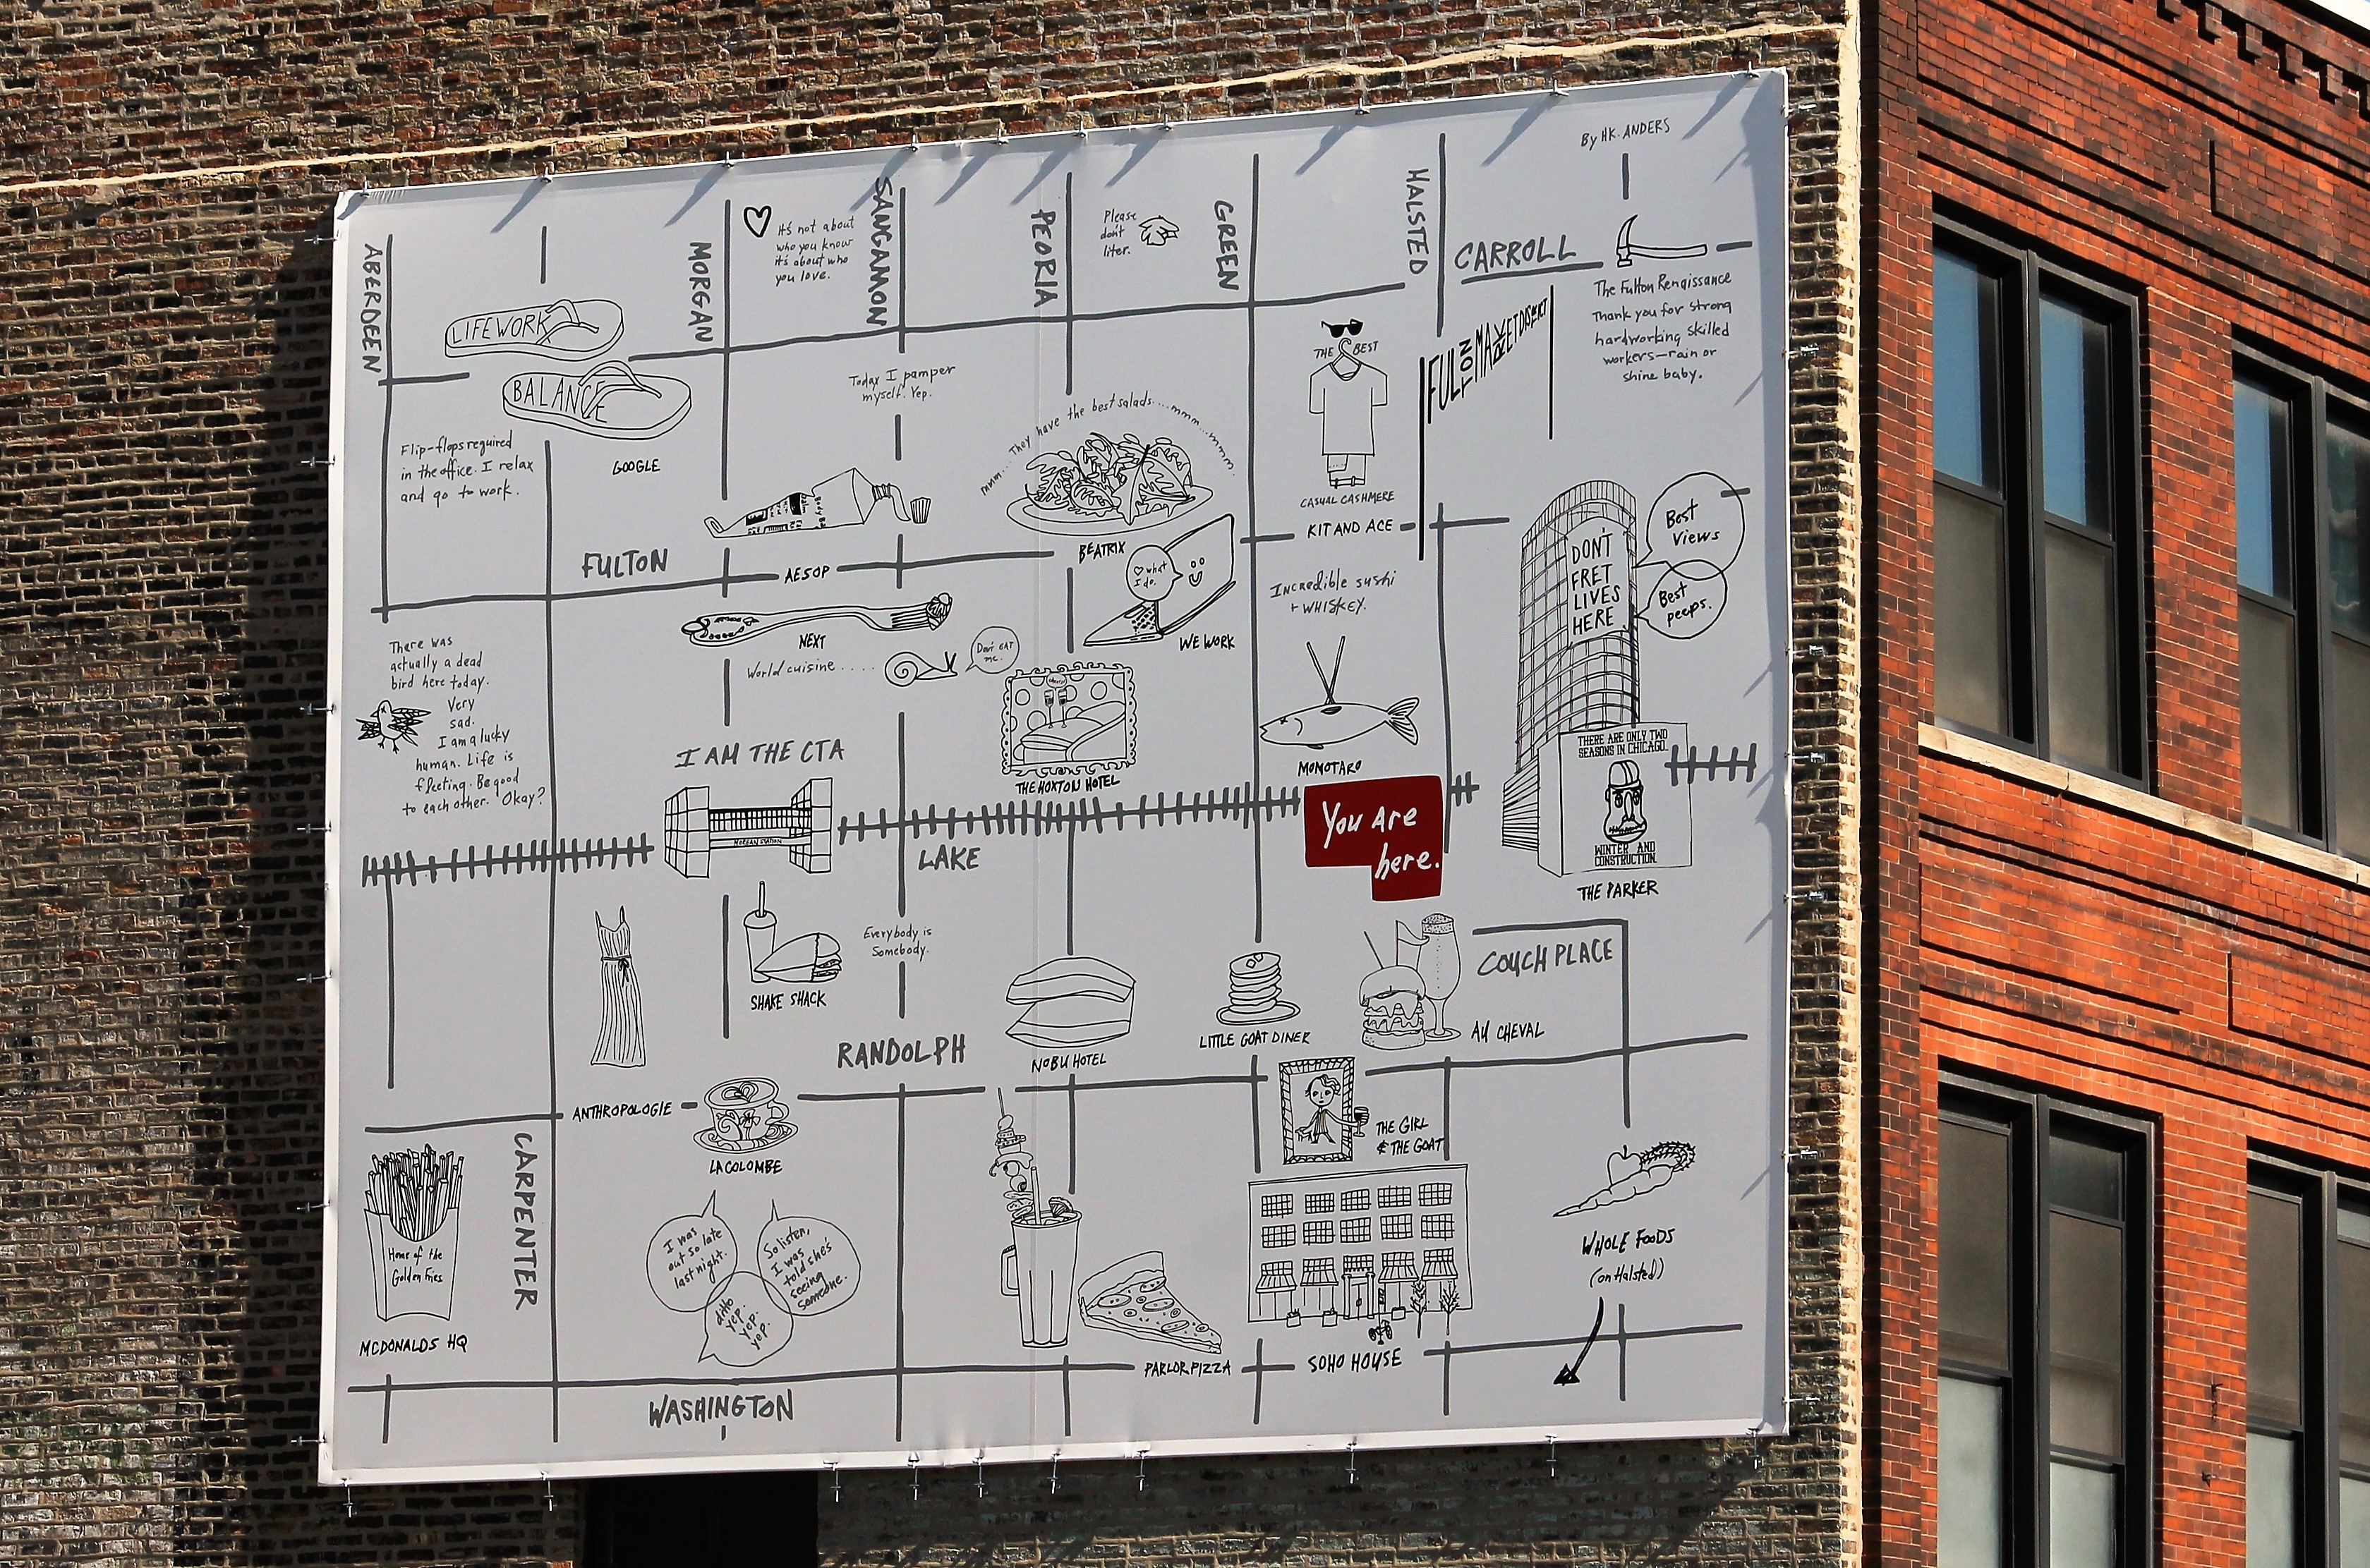 By HK. ANDERS
ABERDEEN
MORGAN
SANGAMON
PEORIA
GREEN
HALSTED
CARROLL
It's not about
who you know
it's about who
you love.
Please
don't
liter.
The Fulton Renaissance
Thank you for strong
hardworking skilled
workers—rain or
shine baby.
LIFEWORK
BALANCE
Flip-flops required
in the office. I relax
and go to work.
GOOGLE
Today I pamper
myself. Yep.
mmm... They have the best salads....mmm...mmmm.
BEATRIX
THE BEST
CASUAL CASHMERE
KIT AND ACE
FULTON MARKET DISTRICT
FULTON
AESOP
♡ what
I do.
WE WORK
Incredible sushi
+ WHISKEY.
MOMOTARO
DON'T
FRET
LIVES
HERE
Best
Views
Best
peeps.
NEXT
World cuisine....
Don't EAT
me.
There was
actually a dead
bird here today.
Very
sad.
I am a lucky
human. Life is
fleeting. Be good
to each other. Okay?
I AM THE CTA
MORGAN STATION
THE HOXTON HOTEL
LAKE
You Are
here.
THERE ARE ONLY TWO
SEASONS IN CHICAGO.
WINTER AND
CONSTRUCTION.
THE PARKER
SHAKE SHACK
Everybody is
Somebody.
COUCH PLACE
RANDOLPH
NOBU HOTEL
LITTLE GOAT DINER
AU CHEVAL
ANTHROPOLOGIE
LA COLOMBE
THE GIRL
& THE GOAT
CARPENTER
Home of the
Golden Fries
MCDONALDS HQ
I was
out so late
last night.
So listen,
I was
told she's
seeing
someone.
ditto
yep.
yep.
yep.
WHOLE FOODS
(on Halsted)
PARLOR PIZZA
SOHO HOUSE
WASHINGTON